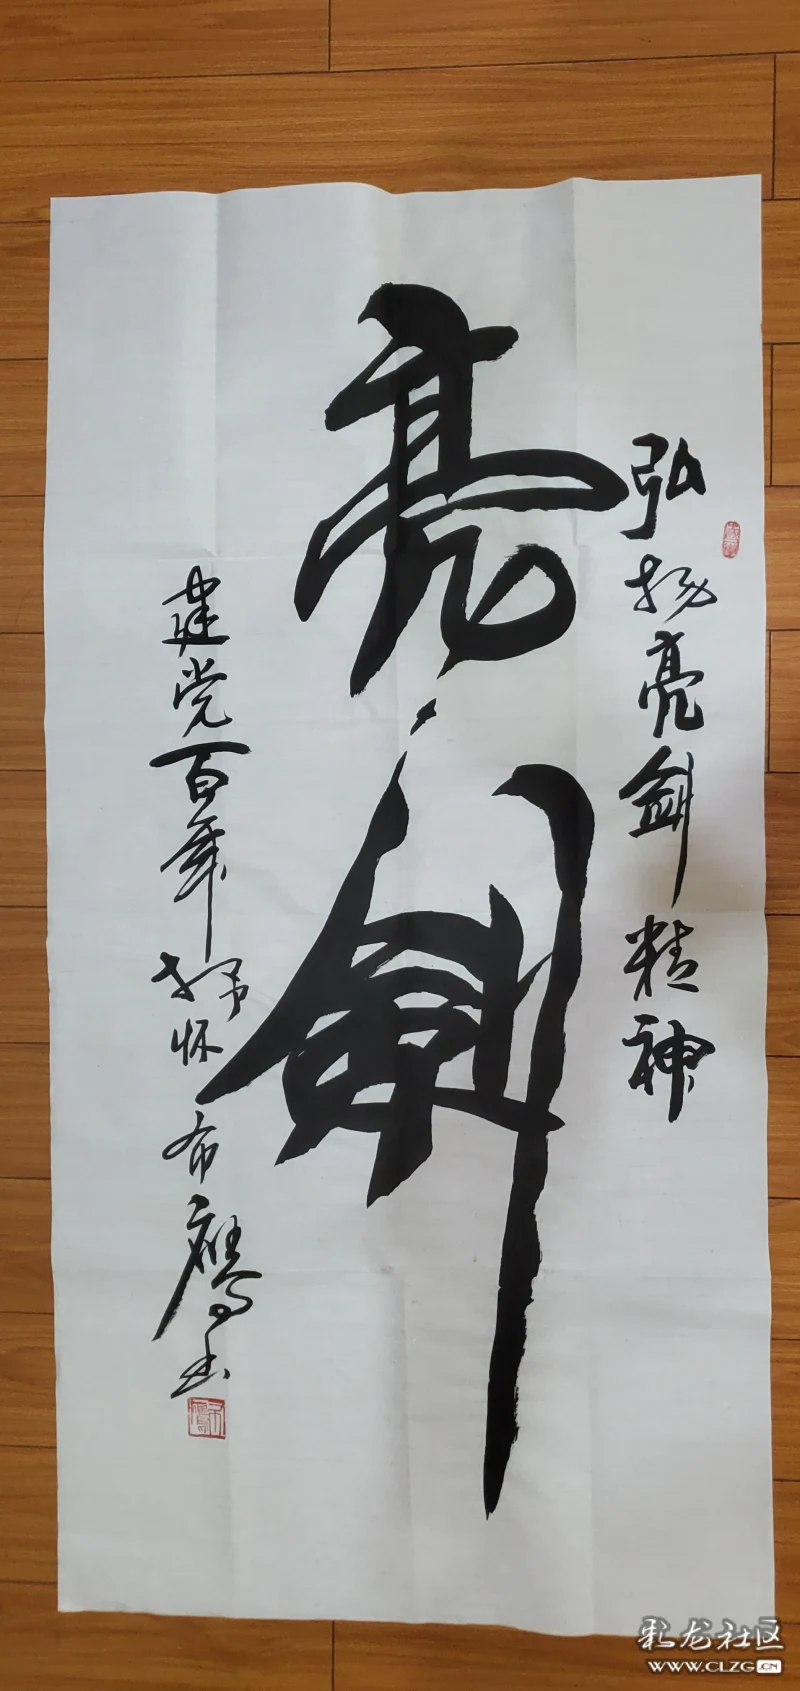 弘扬亮剑精神
亮剑
建党百年抒怀 布鹰书
彩龙社区
WWW.CLZG.CN